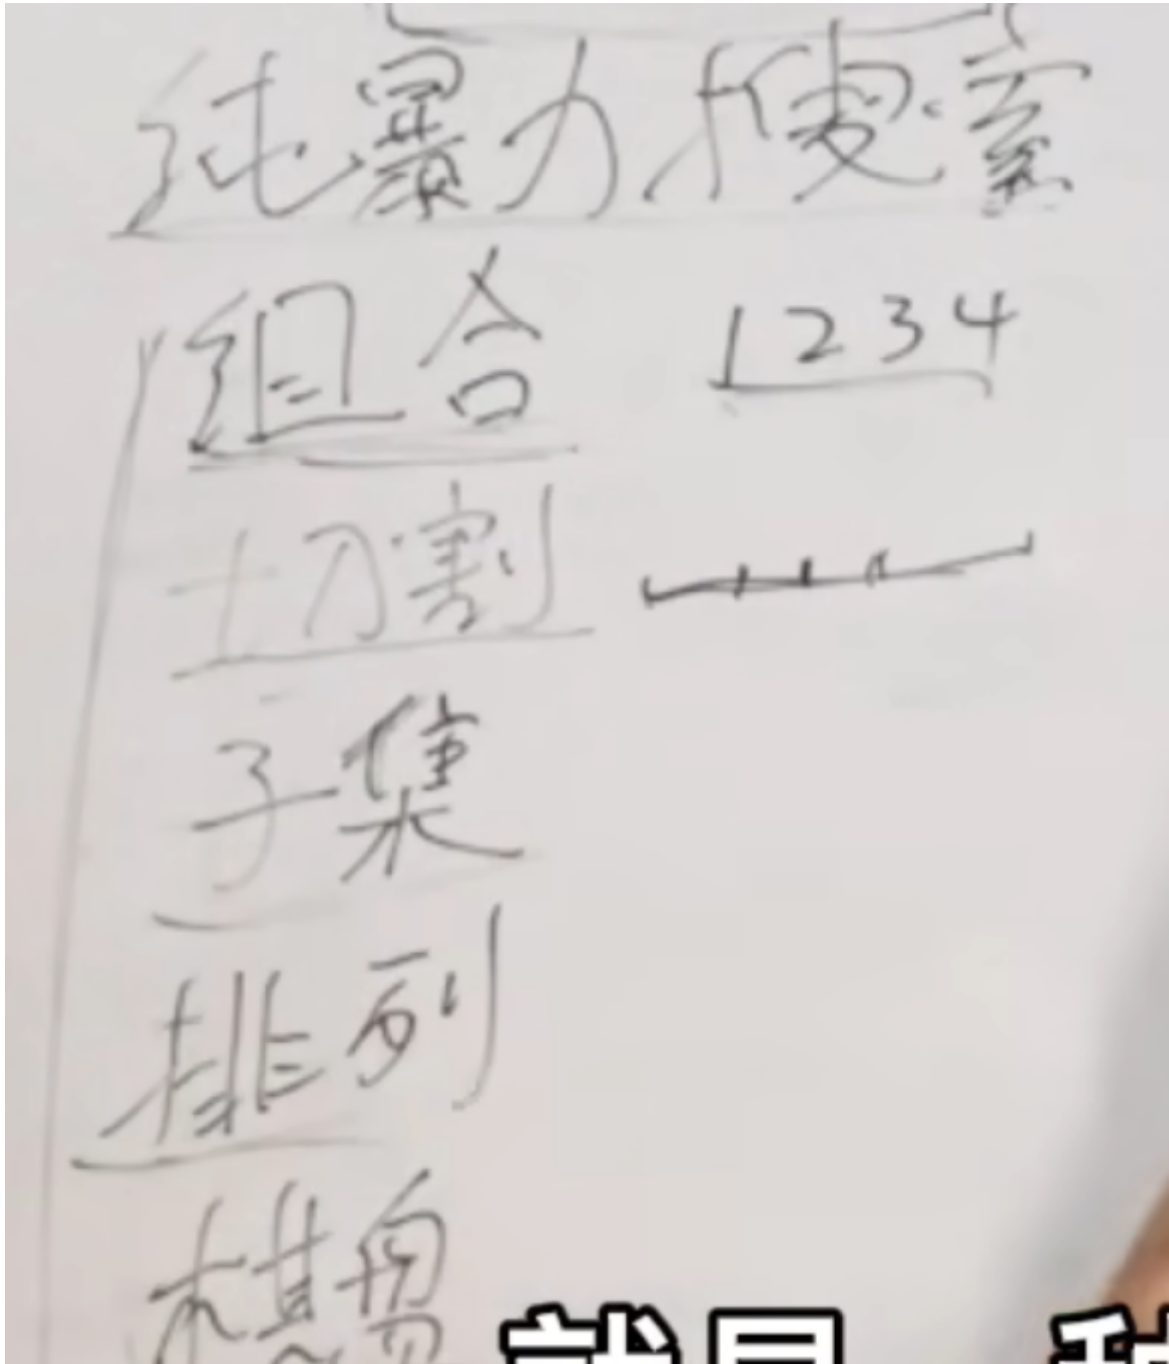 纯暴力搜索
组合 1234
切割
子集
排列
棋盘
就是